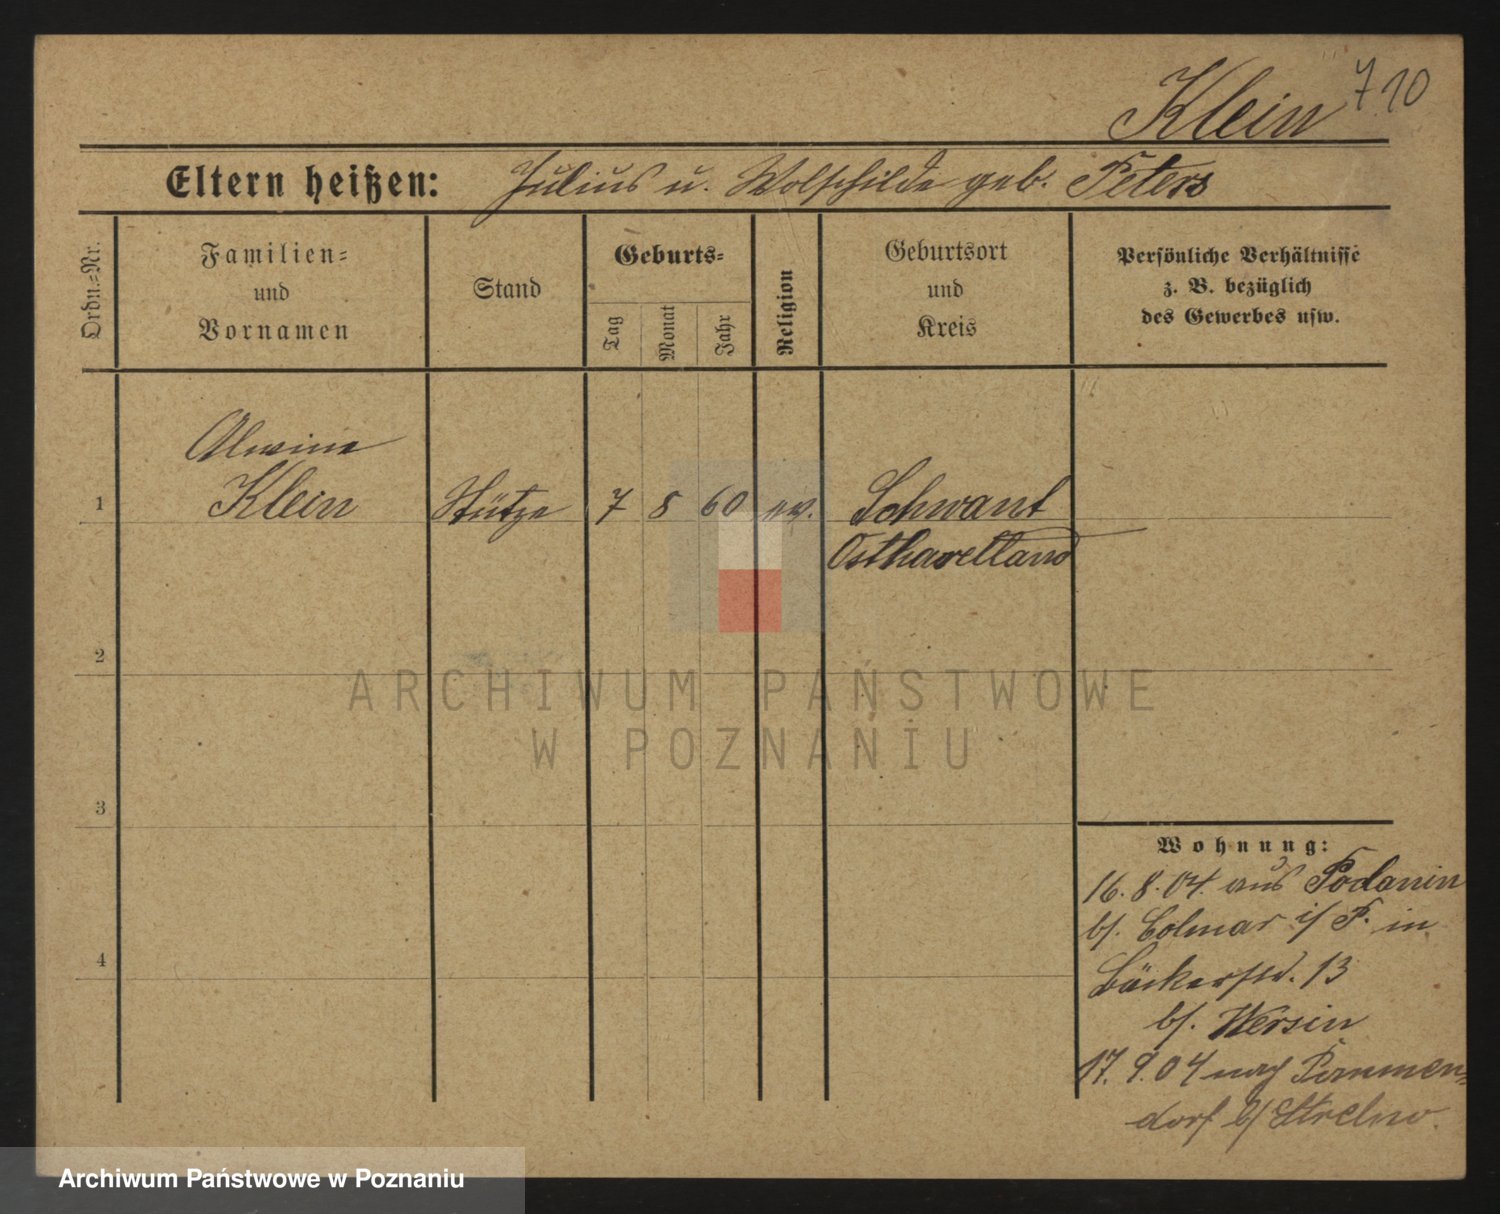 Klein 710
Eltern heißen: Julius u. geb. Peters
Ordn.=Nr.
Familien=
und
Vornamen
Stand
Geburts=
Tag
Monat
Jahr
Religion
Geburtsort
und
Kreis
Persönliche Verhältnisse
z. B. bezüglich
des Gewerbes usw.
Alwine
1 Klein Stütze 7 8 60 ev. Schwant
Osthavelland
2
3
4
Wohnung:
16. 8. 04. aus Podanin
b/. Colmar i/ P. in
Bäckerstr. 13
b/. Wersin
17. 9. 04 nach
dorf b/ Strelno.
ARCHIWUM PAŃSTWOWE
W POZNANIU
Archiwum Państwowe w Poznaniu